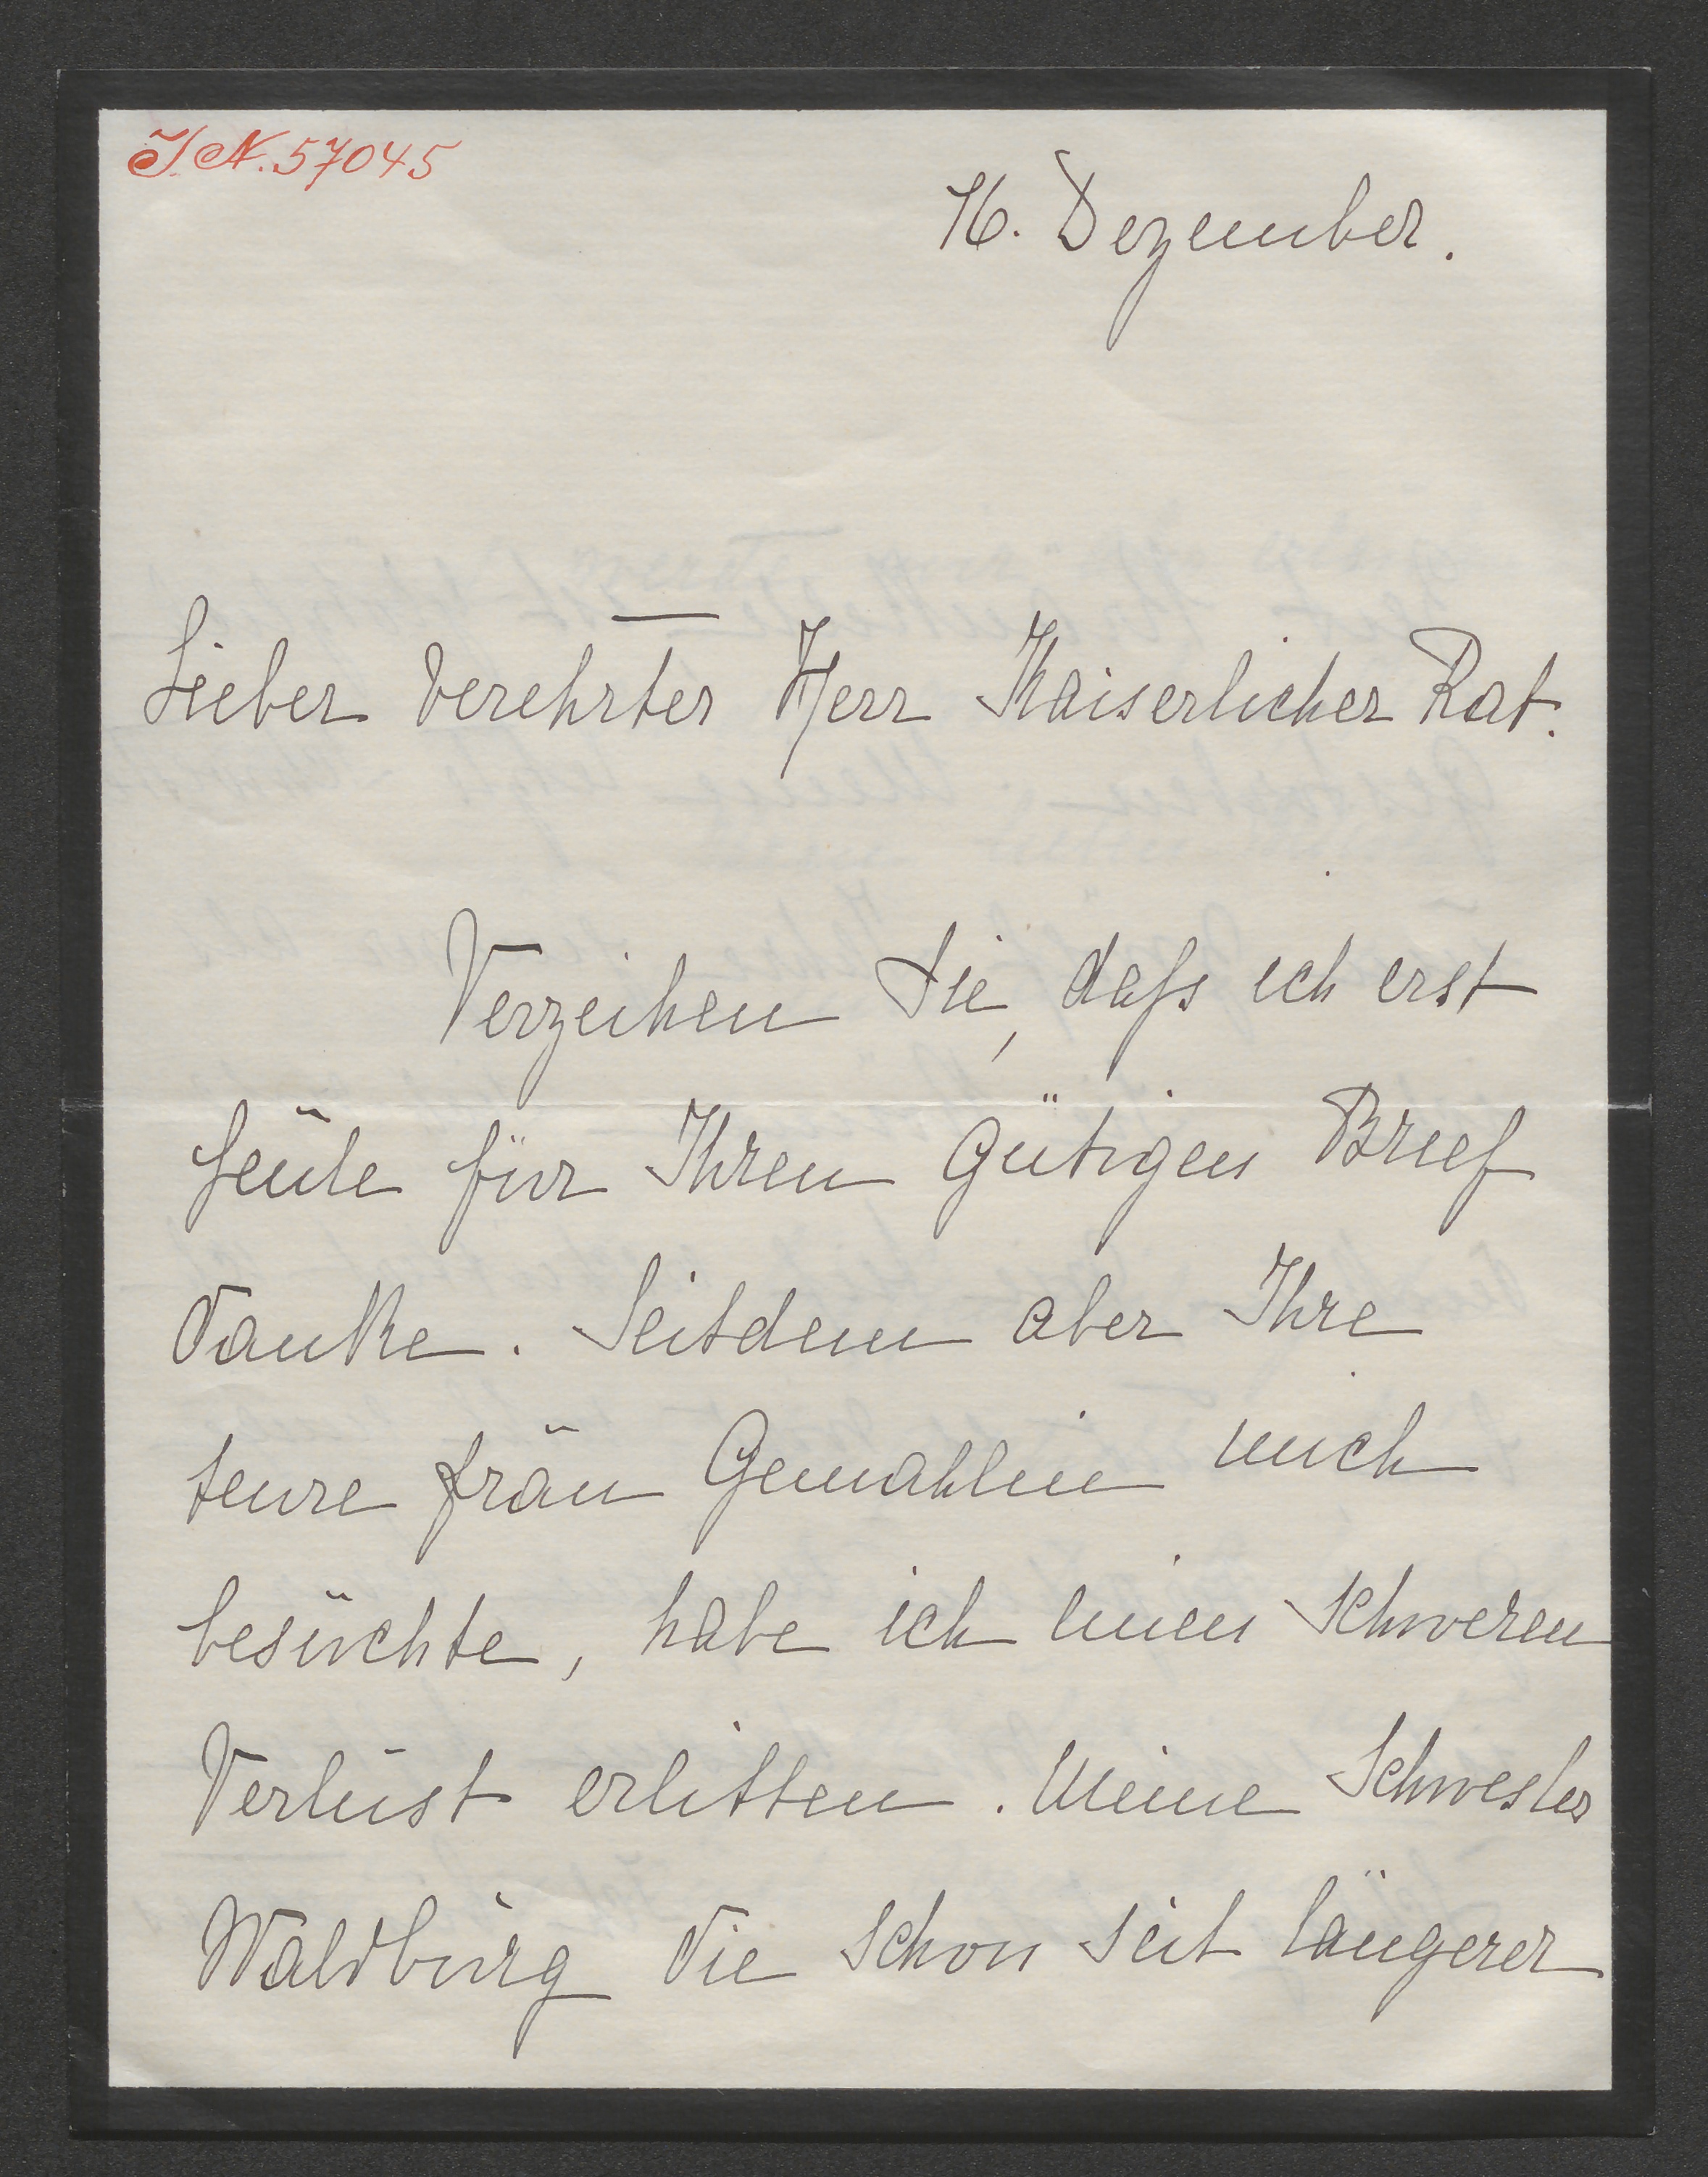 I.N. 57045
16. Dezember.
Lieber verehrter Herr Kaiserlicher Rat.
Verzeihen Sie, dass ich erst
heute für Ihren gütigen Brief
danke. Seitdem aber Ihre
teure Frau Gemahlin mich
besuchte, habe ich einen schweren
Verlust erlitten. Meine Schwester
Waldburg die schon seit längerer